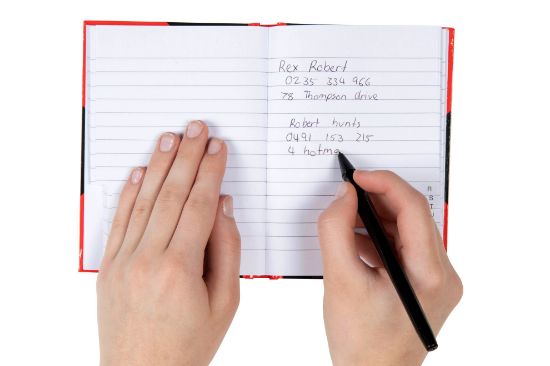 Rex Robert
0235 334 966
78 Thompson drive
Robert hunts
0491 153 215
4 hotma
R
S
T